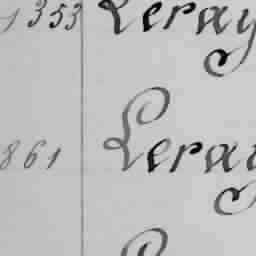 1353 Leray
861 Leray